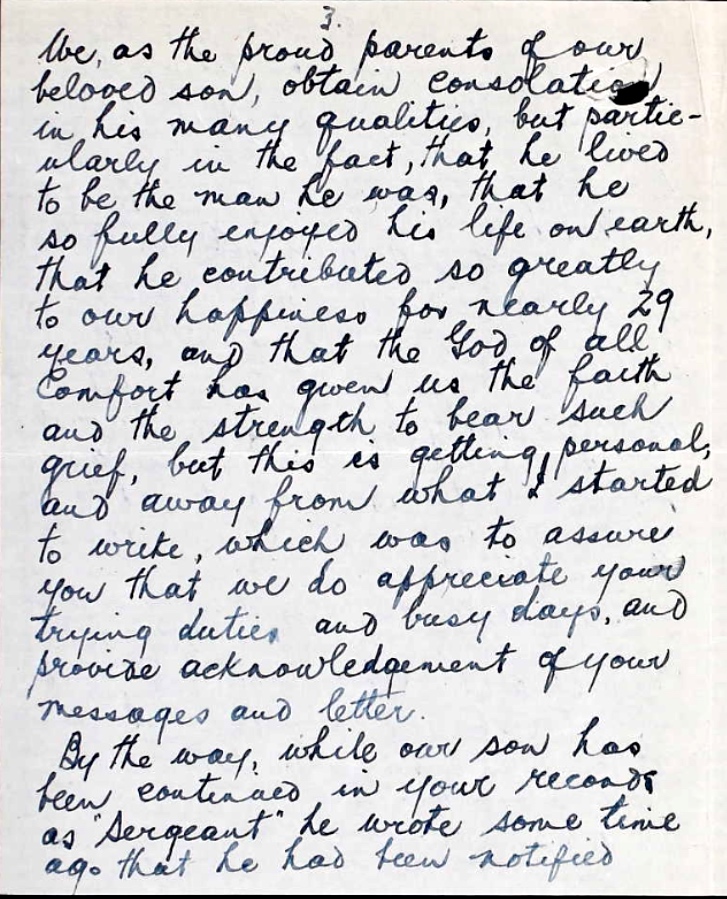 3.
We, as the proud parents of our
beloved son, obtain consolation
in his many qualities, but partic-
ularly in the fact, that he lived
to be the man he was, that he
so fully enjoyed his life on earth,
that he contributed so greatly
to our happiness for nearly 29
years, and that the God of all
Comfort has given us the faith
and the strength to bear such
grief, but this is getting personal,
and away from what I started
to write, which was to assure
you that we do appreciate your
trying duties and busy days, and
provide acknowledgement of your
messages and letter.
By the way, while our son has
been continued in your records
as "Sergeant" he wrote some time
ago that he had been notified